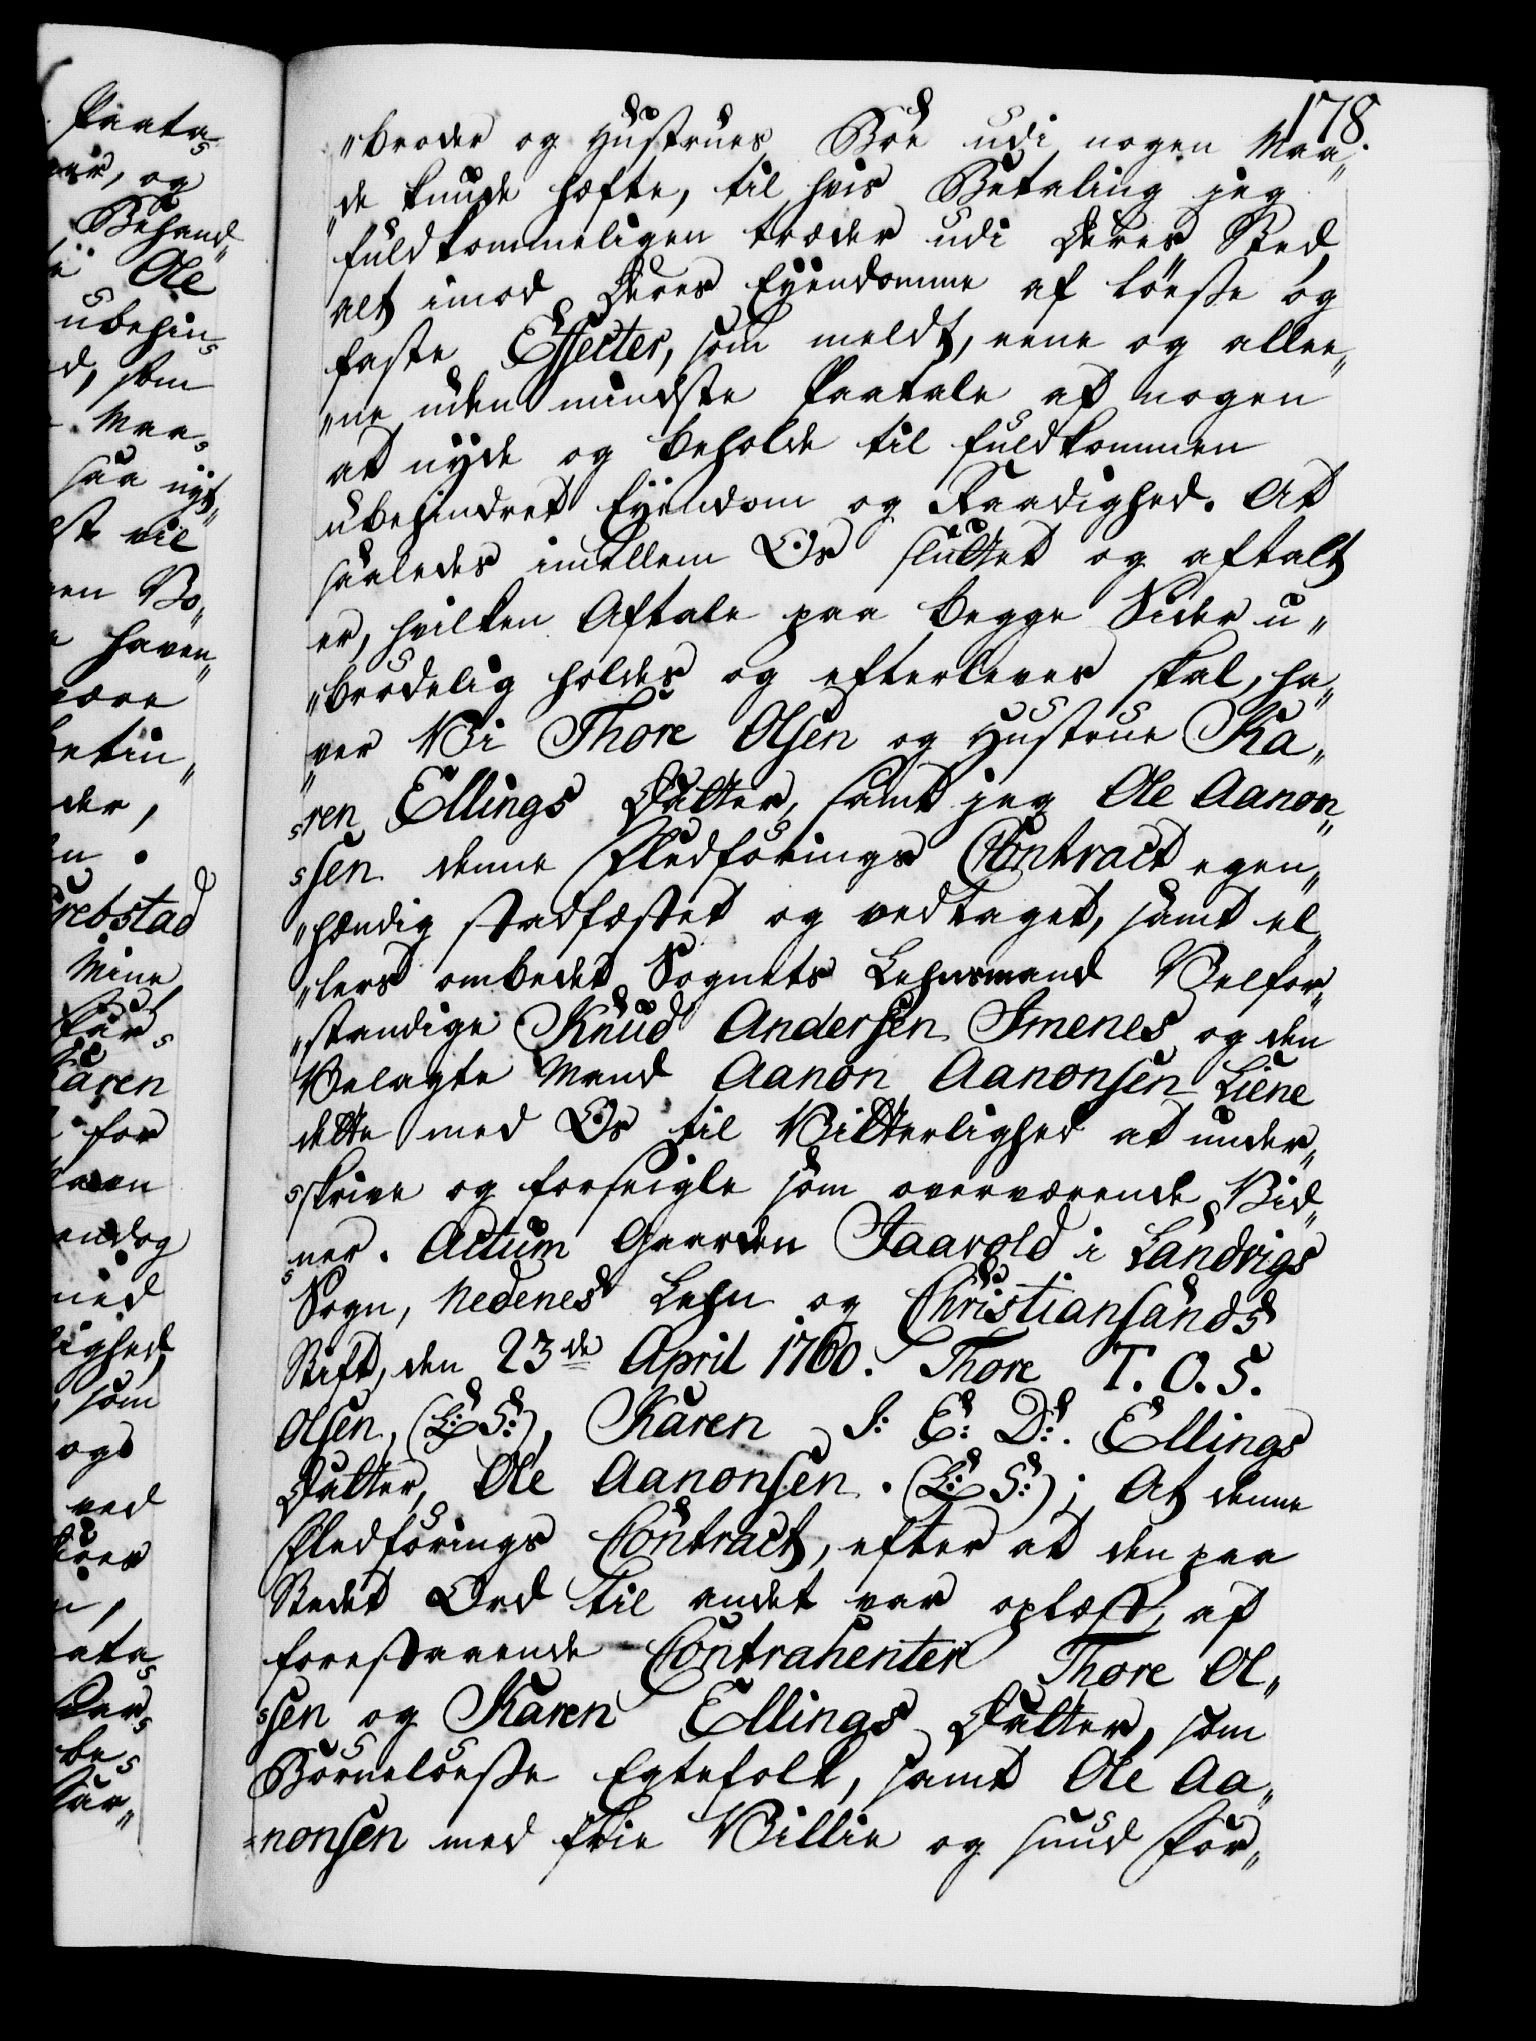 178.
"broder og Hustrues Boe udi nogen Maa„
"de kunde hæfte, til hvis Betaling jeg
fuldkommeligen træder udi Deres Sted,
alt imod Deres Eyendomme af Löesse og
faste Effecter, som meldt, eene og allee„
"ne uden mindste Paatale af nogen
at nyde og beholde til fuldkommen
ubehindret Eyendom og Raadighed. At
saaledes imellem Os sluttet og aftalt
er, hvilken Aftale paa begge Sider u„
"brödelig holdes og efterleves skal, ha„
"ver Vi Thore Olsen og Hustrue Ka„
"ren Ellings Datter, samt jeg Ole Aanon„
"sen denne Fledförings Contract egen„
"hændig stadfæstet og vedtaget, samt el„
"lers ombedet Sognets Lehnsmand Velfor„
"standige Knud Andersen Imenes og den
Velagte Mand Aanon Aanonsen Liene
dette med Os til Vitterlighed at under„
"skrive og forseigle som overværende Vid„
"ner. Actum Gaarden Jaavold i Landvigs
Sogn, Nedenes Lehn og Christiansands
Stift, den 23de April 1760. Thore T. O. S.
Olsen, (L: S:), Karen S: E: D:. Ellings
Datter, Ole Aanonsen. (L: S:); At denne
Fledförings Contract, efter at den paa
Stedet Ord til andet var oplæst, af
forestaaende Contrahenter Thore Ol„
"sen og Karen Ellings Datter, som
Börnelöesse Egtefolk, samt Ole Aa„
"nonsen med frie Villie og sund For„
Paata„
og
Behand„
Ole
ubehin„
d, som
Maa„
saa nyt„
vil
en Bo„
haven„
være
betin„
der,
Grebstad
Mine
Karen
for
endog
med
lighed,
som
ogs
ved
be„